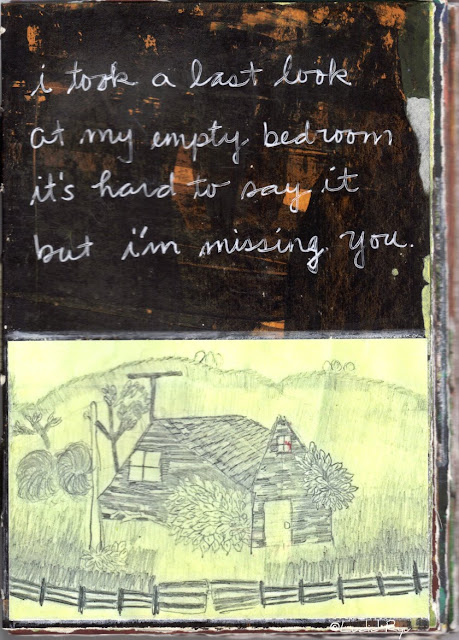 i took a last look
at my empty bedroom
it's hard to say it
but i'm missing you.